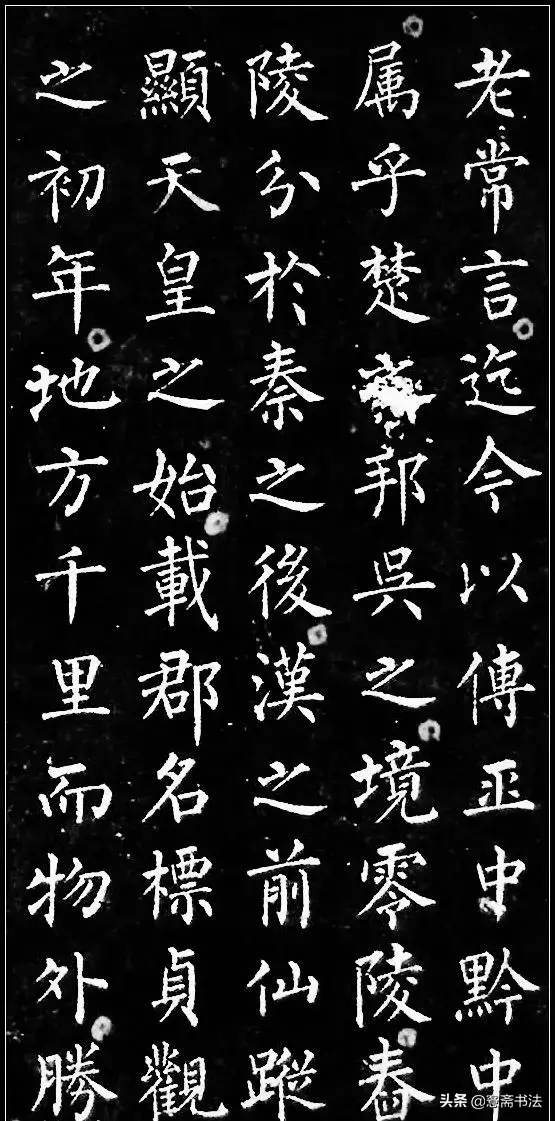 老常言迄今以傳正中黔中
属乎楚之邦吳之境零陵舂
陵分於秦之後漢之前仙蹤
顯天皇之始載郡名標貞觀
之初年地方千里而物外勝
头条 @書斋书法